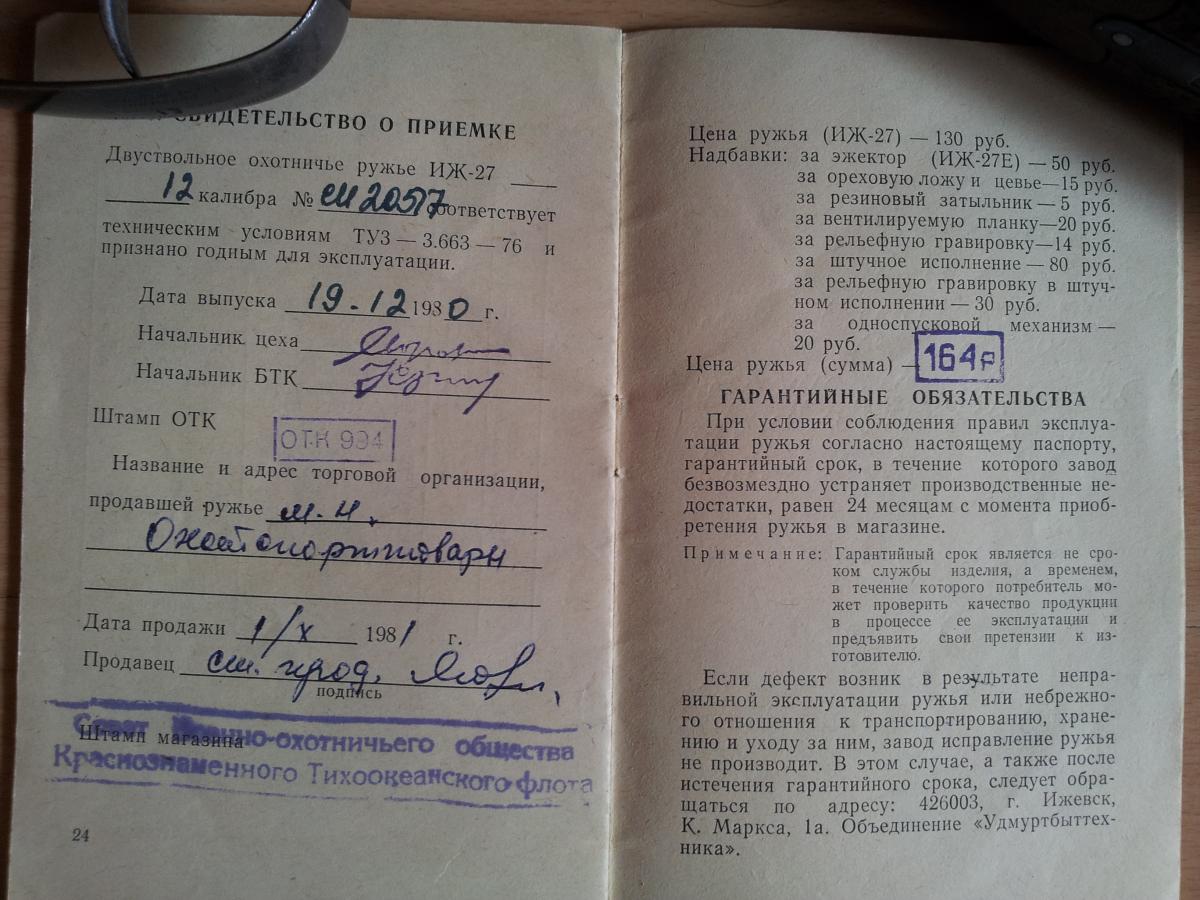 СВИДЕТЕЛЬСТВО О ПРИЕМКЕ
Двуствольное охотничье ружье ИЖ-27
12 калибра № СИ 20517 соответствует
техническим условиям ТУЗ — 3.663 — 76 и
признано годным для эксплуатации.
Дата выпуска 19.12 1980 г.
Начальник цеха
Начальник БТК
Штамп ОТК
ОТК 994
Название и адрес торговой организации,
продавшей ружье м.н.
Охотспорттовары
Дата продажи 1/X 1981 г.
Продавец ст. прод.
подпись
Совет Военно-охотничьего общества
Штамп магазина
Краснознаменного Тихоокеанского флота
24
Цена ружья (ИЖ-27) — 130 руб.
Надбавки: за эжектор (ИЖ-27Е) — 50 руб.
за ореховую ложу и цевье—15 руб.
за резиновый затыльник — 5 руб.
за вентилируемую планку—20 руб.
за рельефную гравировку—14 руб.
за штучное исполнение — 80 руб.
за рельефную гравировку в штуч-
ном исполнении — 30 руб.
за односпусковой механизм —
20 руб.
Цена ружья (сумма) — 164р
ГАРАНТИЙНЫЕ ОБЯЗАТЕЛЬСТВА
При условии соблюдения правил эксплуа-
тации ружья согласно настоящему паспорту,
гарантийный срок, в течение которого завод
безвозмездно устраняет производственные не-
достатки, равен 24 месяцам с момента приоб-
ретения ружья в магазине.
Примечание: Гарантийный срок является не сро-
ком службы изделия, а временем,
в течение которого потребитель мо-
жет проверить качество продукции
в процессе ее эксплуатации и
предъявить свои претензии к из-
готовителю.
Если дефект возник в результате непра-
вильной эксплуатации ружья или небрежно-
го отношения к транспортированию, хране-
нию и уходу за ним, завод исправление ружья
не производит. В этом случае, а также после
истечения гарантийного срока, следует обра-
щаться по адресу: 426003, г. Ижевск,
К. Маркса, 1а. Объединение «Удмуртбыттех-
ника».